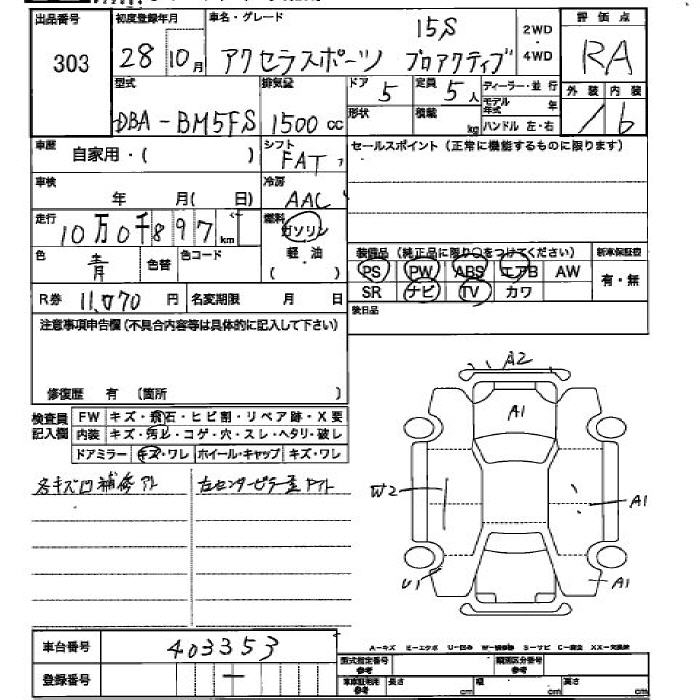 出品番号
303
初度登録年月
28 10月
車名・グレード
15S
アクセラスポーツ プロアクティブ
2WD
・
4WD
評価点
RA
外装 内装
/ b
型式
DBA-BM5FS
排気量
1500 cc
ドア
5
定員
5人
形状
積載
kg
ディーラー・並行
モデル年式 年
ハンドル 左・右
車歴
自家用・( )
シフト
FAT
セールスポイント(正常に機能するものに限ります)
車検
年 月( 日)
冷房
AAC
走行
10万0千897 km
燃料
ガソリン
軽・油
( )
色
青
色替
色コード
装備品 (純正品に限り○をつけてください)
新車保証書
PS PW ABS エアB AW
有・無
SR ナビ TV カワ
R券 11,070 円
名変期限 月 日
後日品
注意事項申告欄(不具合内容等は具体的に記入して下さい)
修復歴 有 〔箇所 〕
検査員記入欄
FW キズ・飛石・ヒビ割・リペア跡・X要
内装 キズ・汚レ・コゲ・穴・スレ・ヘタリ・破レ
ドアミラー キズ・ワレ ホイール・キャップ キズ・ワレ
各キズ凹補修アト
左センターピラー歪アト
A2
A1
W2
A1
U1
A1
車台番号
403353
登録番号
—
A-キズ E-エクボ U-凹み W-補修跡 S-サビ C-腐食 XX-交換済
型式指定番号
参考
類別区分番号
参考
参考
長さ cm
幅 cm
高さ cm